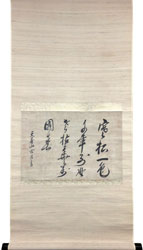 寒松一色
千年別野
老拈花萬
國春